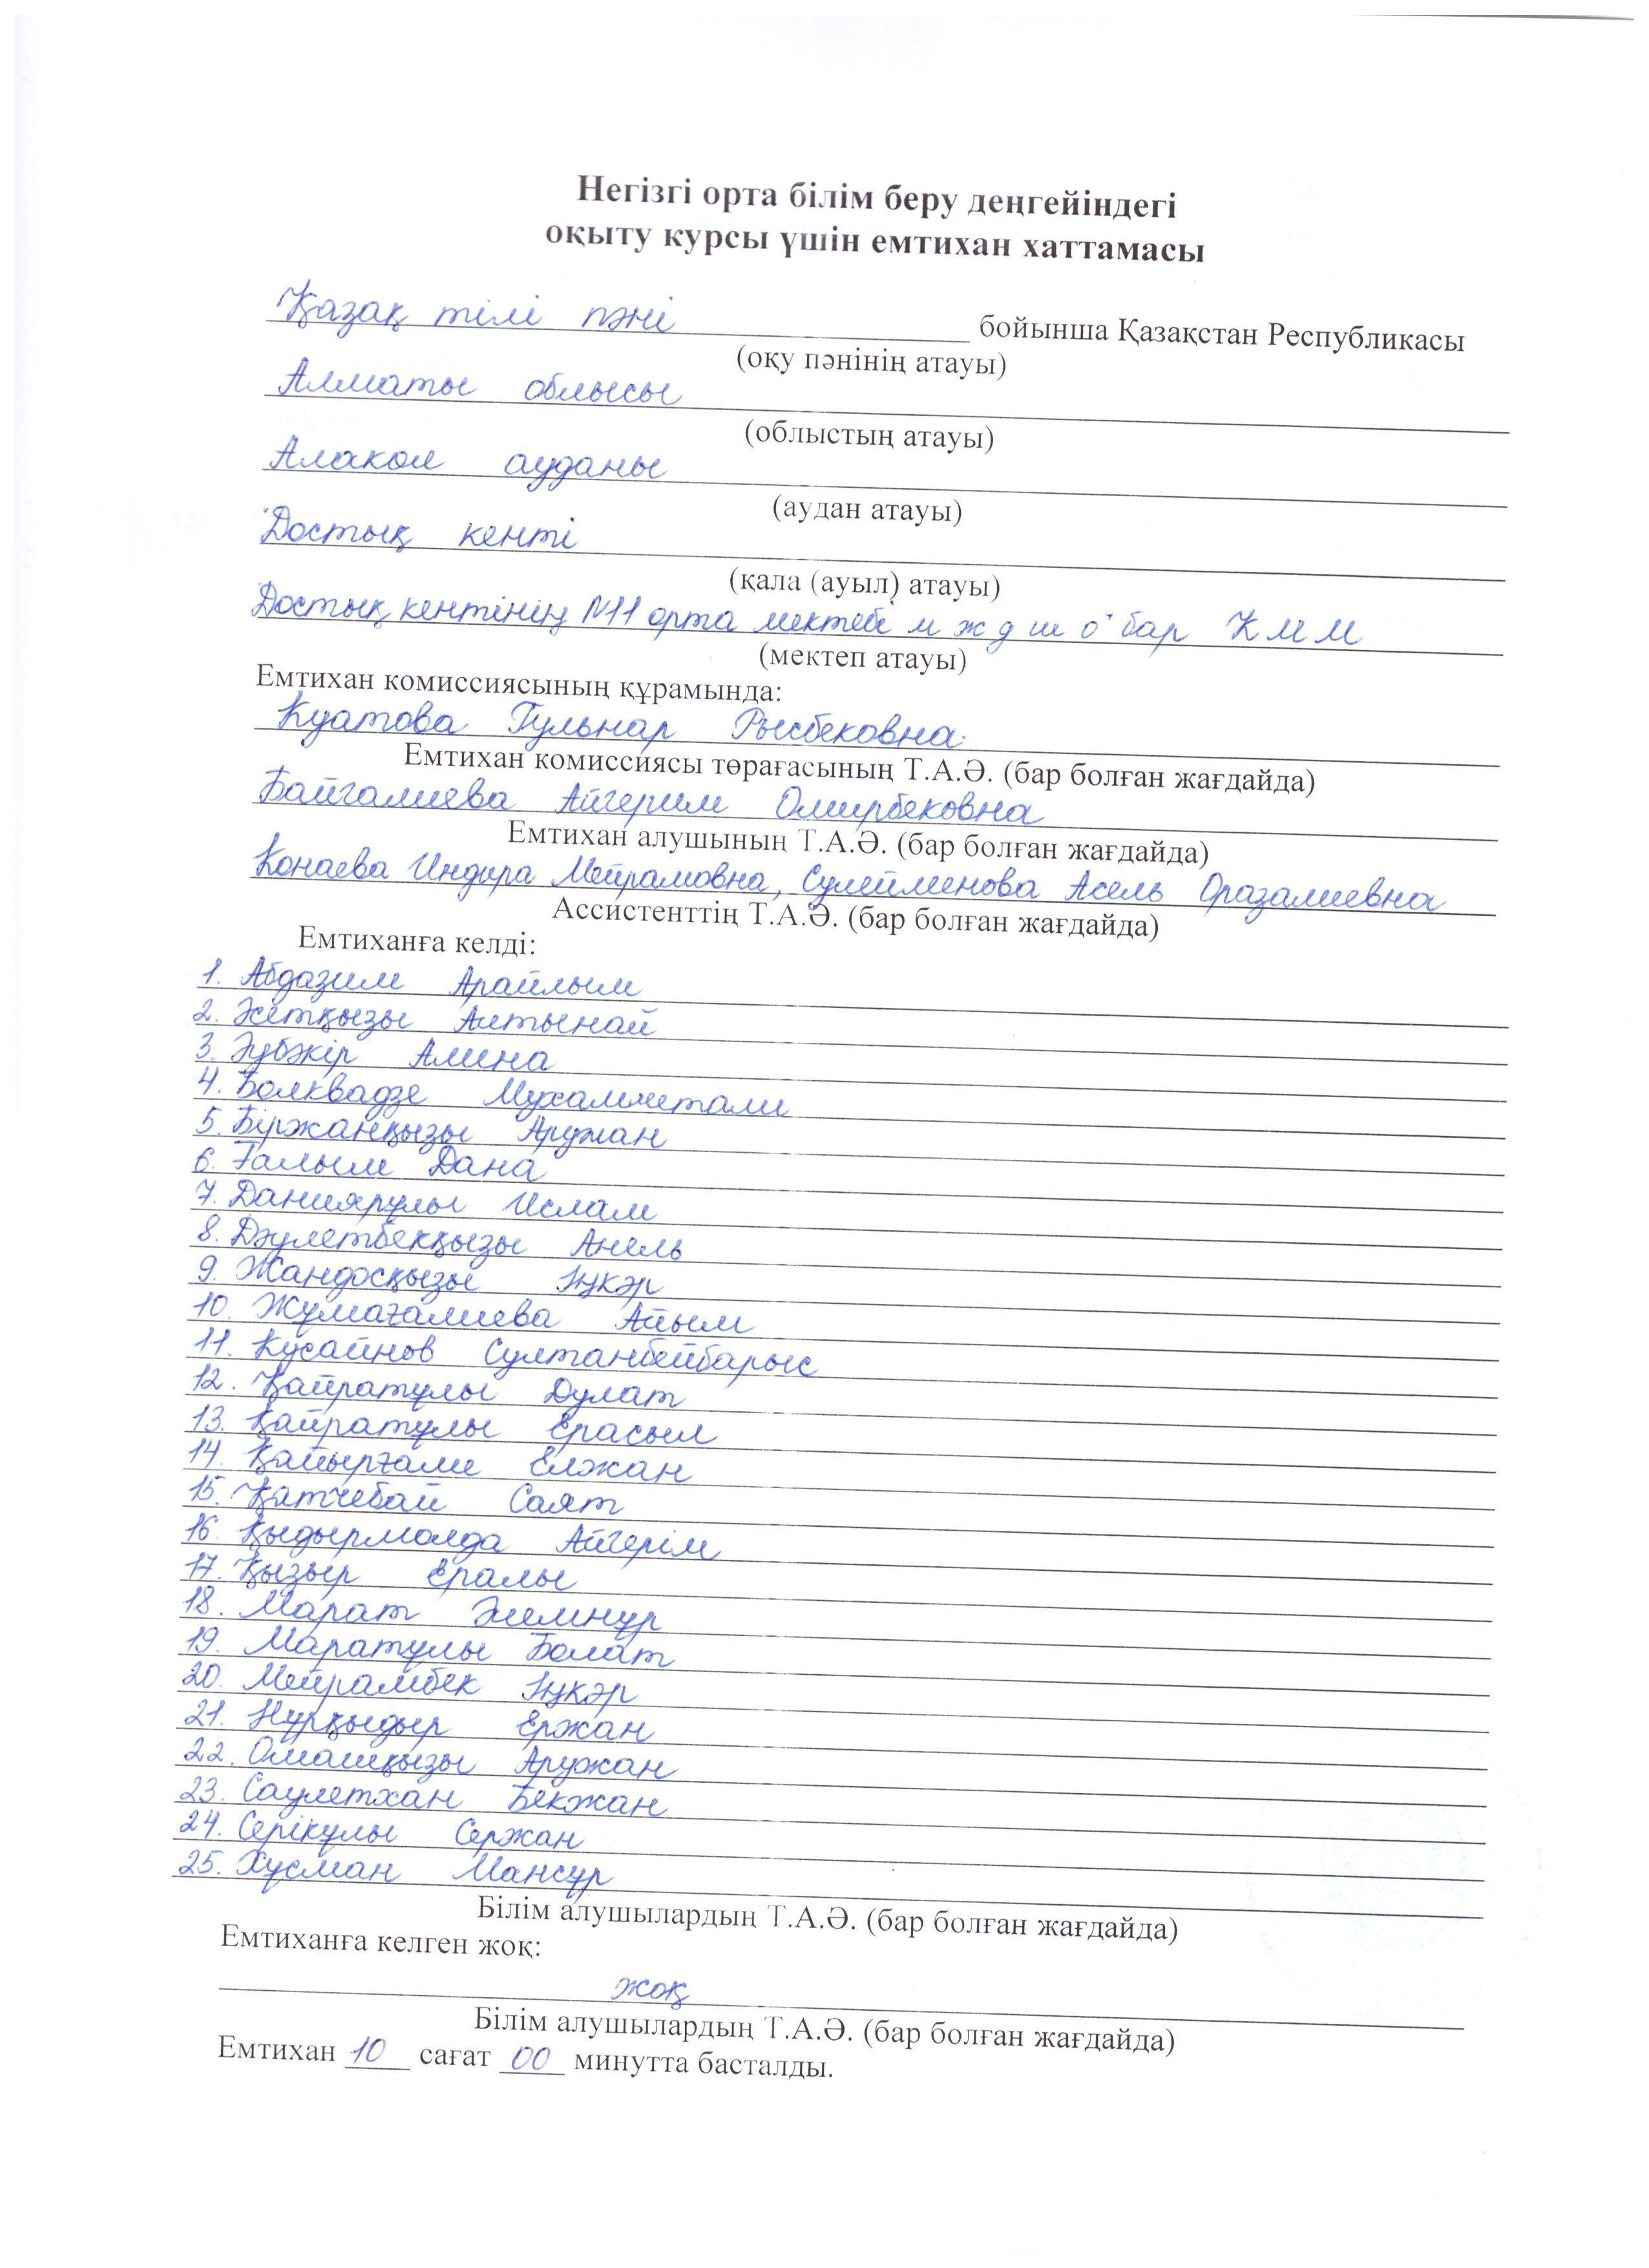 Негізгі орта білім беру деңгейіндегі
оқыту курсы үшін емтихан хаттамасы
Қазақ тілі пәні бойынша Қазақстан Республикасы
(оқу пәнінің атауы)
Алматы облысы
(облыстың атауы)
Алакол ауданы
(аудан атауы)
Достық кенті
(қала (ауыл) атауы)
Достық кентінің №11 орта мектебі м ж д ш о бар КММ
(мектеп атауы)
Емтихан комиссиясының құрамында:
Куатова Гульнар Рысбековна
Емтихан комиссиясы төрағасының Т.А.Ә. (бар болған жағдайда)
Байгалиева Айгерим Омирбековна
Емтихан алушының Т.А.Ә. (бар болған жағдайда)
Конаева Индира Мейрамовна, Сулейменова Асель Оразалиевна
Ассистенттің Т.А.Ә. (бар болған жағдайда)
Емтиханға келді:
1. Абдазим Арайлым
2. Әсетқызы Алтынай
3. Әубәкір Алина
4. Болквадзе Мухамметали
5. Біржанқызы Аружан
6. Ғалым Дана
7. Даниярұлы Ислам
8. Дәулетбекқызы Анель
9. Жандосқызы Іңкәр
10. Жұмағалиева Айым
11. Кусайнов Султанбейбарыс
12. Қайратұлы Дулат
13. Қайратұлы Ерасыл
14. Қайырғали Елжан
15. Қатчебай Саят
16. Қыдырмолда Айгерім
17. Қызыр Ералы
18. Марат Әлемнұр
19. Маратұлы Болат
20. Мейрамбек Іңкәр
21. Нұрқыдыр Ержан
22. Омашқызы Аружан
23. Саулетхан Бекжан
24. Серікұлы Сержан
25. Хусман Мансұр
Білім алушылардың Т.А.Ә. (бар болған жағдайда)
Емтиханға келген жоқ:
жоқ
Білім алушылардың Т.А.Ә. (бар болған жағдайда)
Емтихан 10 сағат 00 минутта басталды.